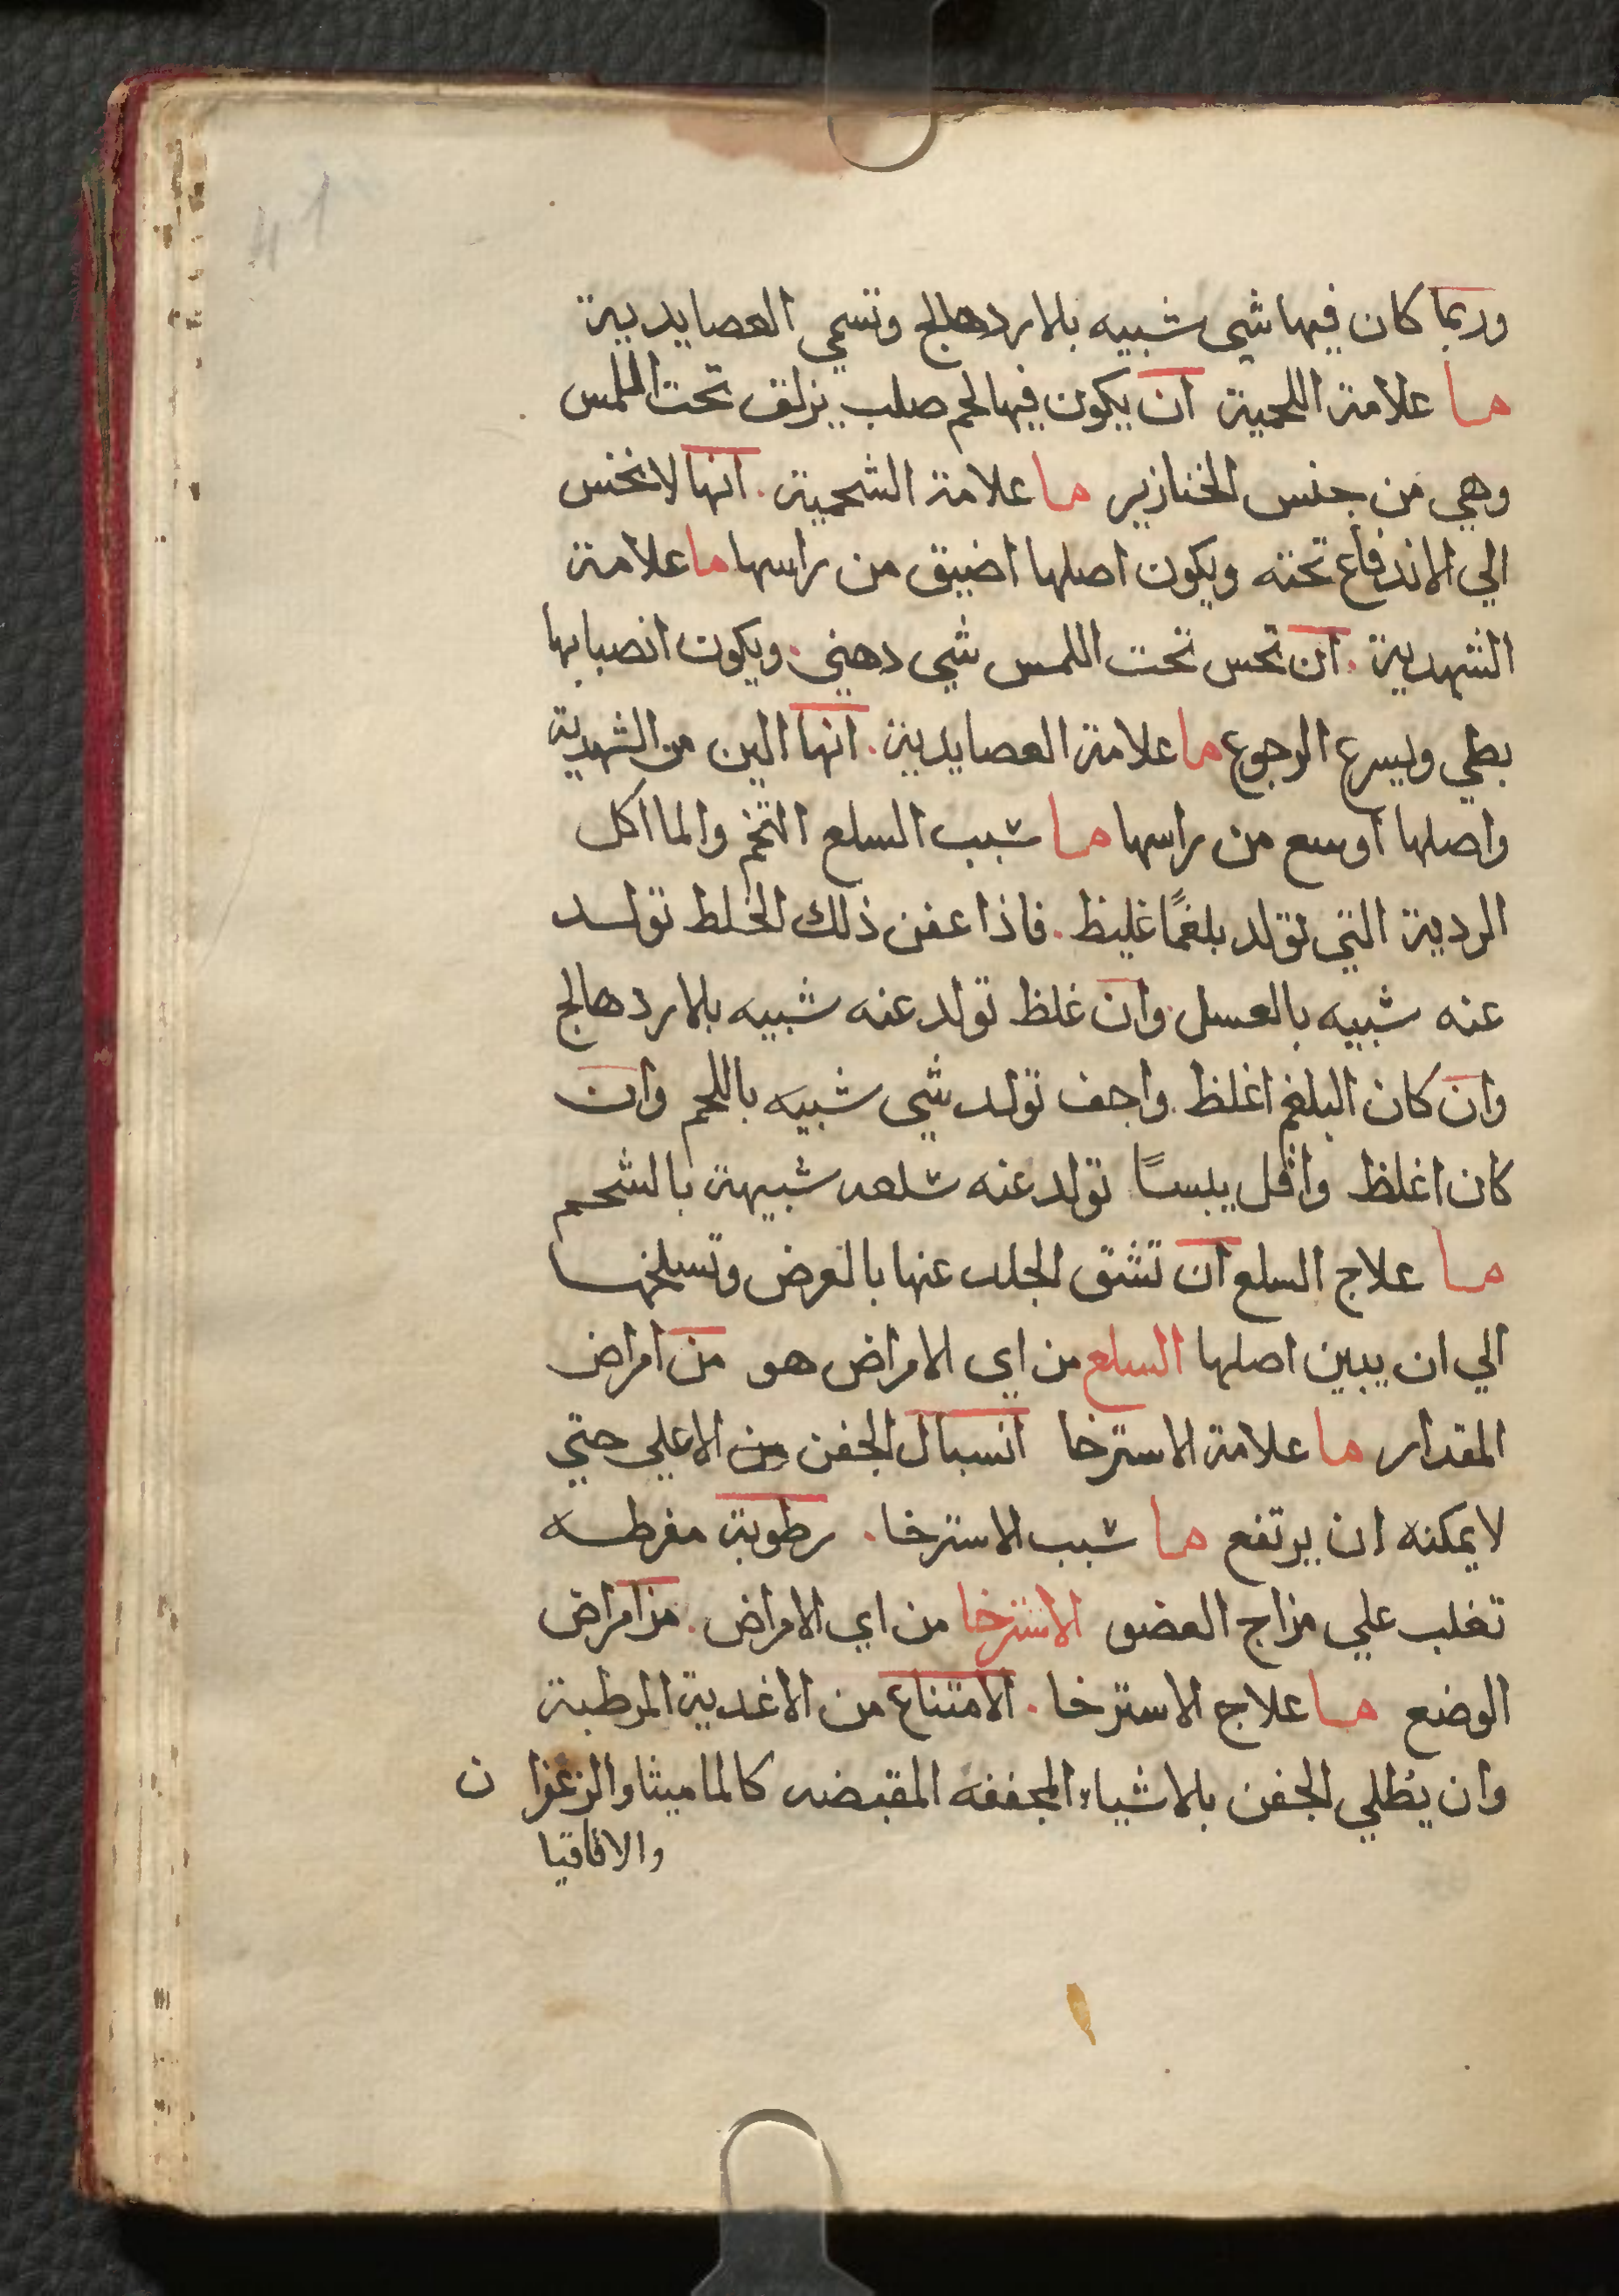 وربما كان فيها شي شبيه بلاردهالج وتسمي العصايدية
ما علامة اللحمية ان يكون فيها لحم صلب يزلق تحت الملمس
وهي من جنس الخنازير ما علامة الشحمية . انها لا تخنس
الي الاندفاع تحته ويكون اصلها اضيق من راسها ما علامة
الشهدية . ان تحس تحت اللمس شي دهني . ويكون انصبابها
بطي ويسرع الرجوع ما علامة العصايدية . انها الين من الشهدية
واصلها اوسع من راسها ما سبب السلع التخم والمااكل
الردية التي تولد بلغمًا غليظ . فاذا عفن ذلك الخلط تولد
عنه شبيه بالعسل . وان غلظ تولد عنه شبيه بلاردهالج
وان كان البلغم اغلظ . واجف تولد شي شبيه باللحم وان
كان اغلظ واقل يبسًا تولد عنه سلعه شبيهة بالشحم
ما علاج السلع ان تشق الجلد عنها بالعرض وتسلخها
الي ان يبين اصلها السلع من اي الامراض هو من امراض
المقدار ما علامة الاسترخا انسبال الجفن من الاعلي حتي
لا يمكنه ان يرتفع ما سبب الاسترخا . رطوبة مفرطه
تغلب علي مزاج العضو الاسترخا من اي الامراض . من امراض
الوضع ما علاج الاسترخا . الامتناع من الاغدية المرطبة
وان يُطلي الجفن بلاشياء المجففه المقبضه كالماميثا والزعفرا ن
والاقاقيا